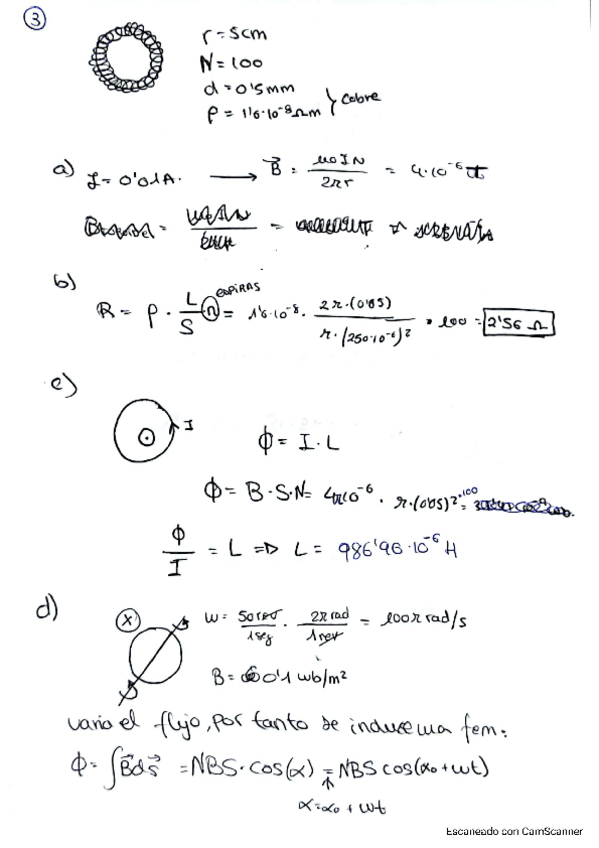 3
r = 5cm
N = 100
d = 0'5mm
ρ = 1'6·10⁻⁸ Ωm } Cobre
a) I = 0'01A. → B⃗ = μ0 I N / 2πr = 4·10⁻⁶ T
b) R = ρ · L/S · n espiras = 1'6·10⁻⁸ · 2π·(0'05) / π·(250·10⁻⁶)² · 100 = 2'56 Ω
c) I
ϕ = I·L
ϕ = B·S·N = 4π10⁻⁶ · π·(0'05)²·100 =
ϕ/I = L ⇒ L = 986'96·10⁻⁶ H
d) X w = 50 rev/1seg · 2π rad/1rev = 100π rad/s
B = 0'1 wb/m²
varia el flujo, por tanto se induce una fem:
ϕ = ∫B⃗ds⃗ = NBS·cos(α) = NBS cos(α₀ + wt)
α = α₀ + wt
Escaneado con CamScanner